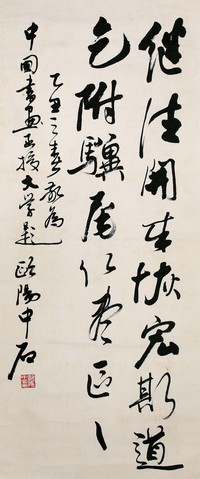 继往开来恢宏斯道
乞附骥尾仅尽区区
乙丑之春敬为
中国书画函授大学题 欧阳中石